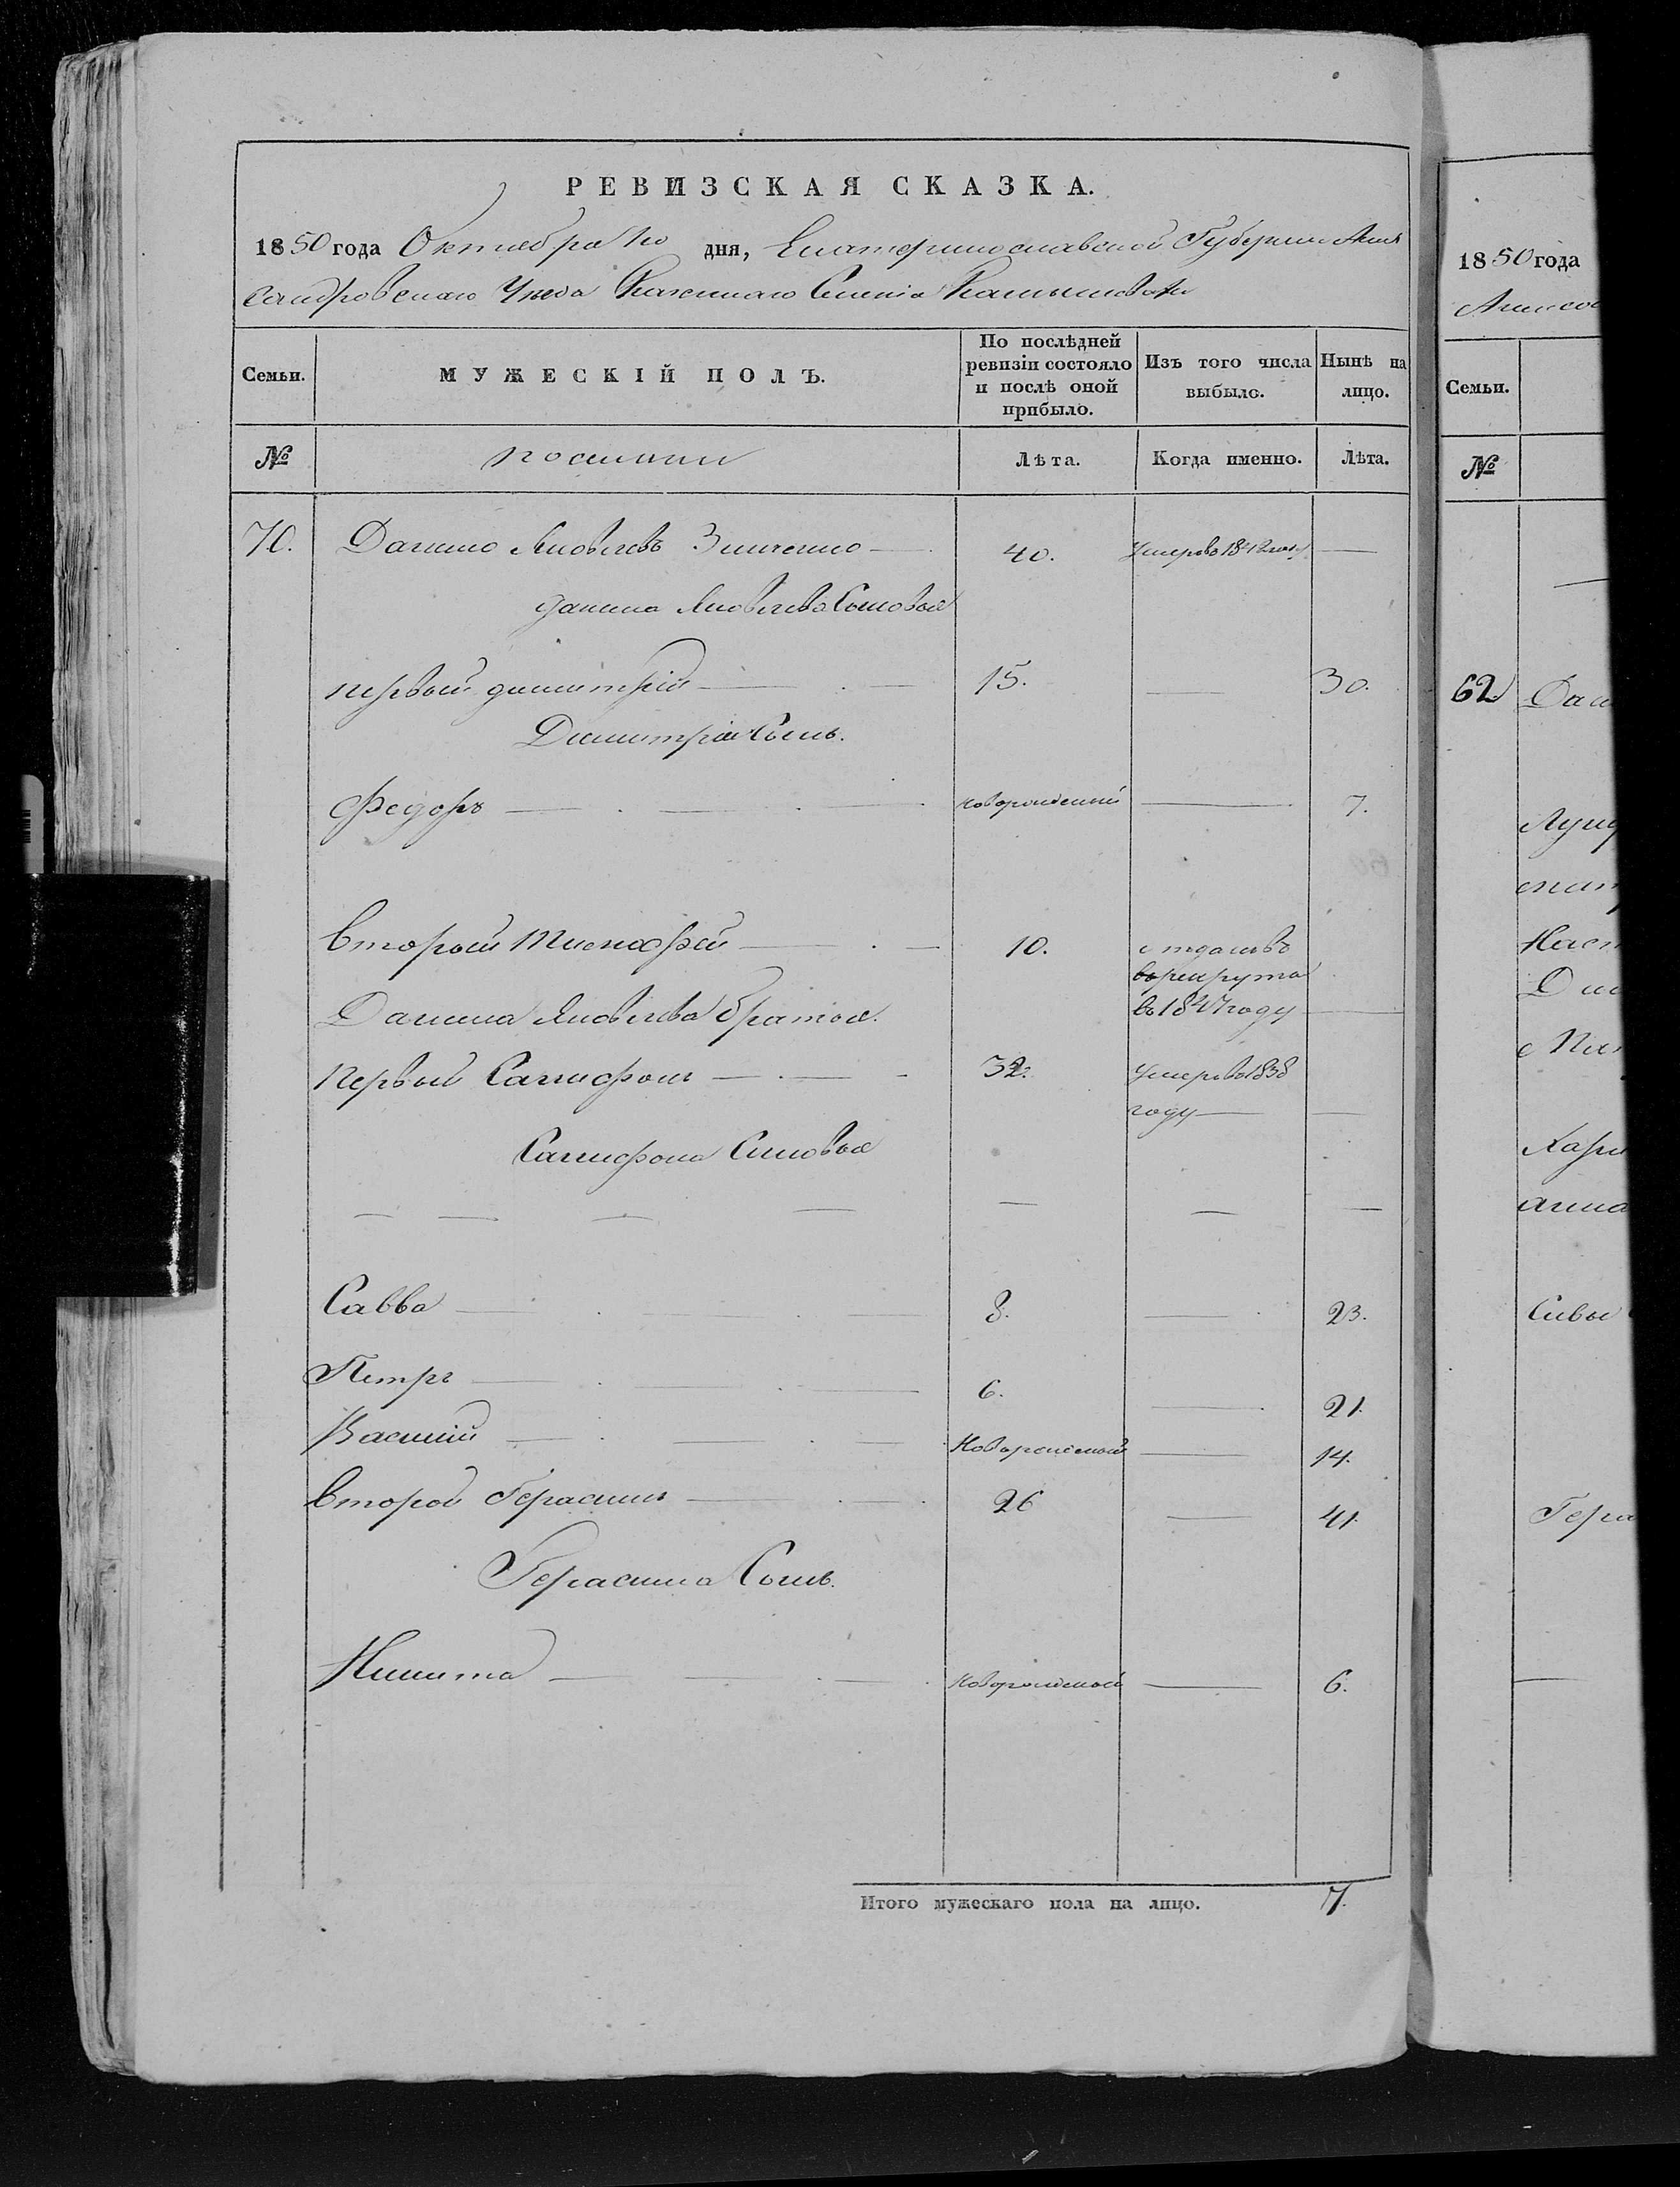 РЕВИЗСКАЯ СКАЗКА.
1850 года Октября дня, Екатеринославской Губернии Алек
сандровскаго Уезда Казеннаго Селенія Камышевахи
Семьи.
МУЖЕСКІЙ ПОЛЪ.
По послѣдней ревизіи состояло и послѣ оной прибыло.
Изъ того числа выбыло.
Нынѣ на лицо.
№
Лѣта.
Когда именно.
Лѣта.
70. Данило Яковлевъ Зинченко — 40. Умеръ в 1842 году —
Данила Яковлева Сыновья
первый Димитрій — 15. — 30.
Димитрія Сынъ.
Федоръ — новорожденный — 7.
Второй Тимофей — 10. отданъ въ
рекрута
в 1847 году —
Данила Яковлева братья.
первый Самифонъ — 32. Умеръ в 1838
году — —
Самифона Сыновья
— — — — — — —
Савва — 8. — 23.
Петръ — 6. — 21.
Василій — Новорожденный — 14.
Второй Герасимъ — 26 — 41.
Герасима Сынъ.
Никита — новорожденный — 6.
Итого мужескаго пола на лицо. 7.
1850 года
Алексан
Семьи.
№
62 Дани
Лукер
Наст
Хари
анна
Савы
Гера